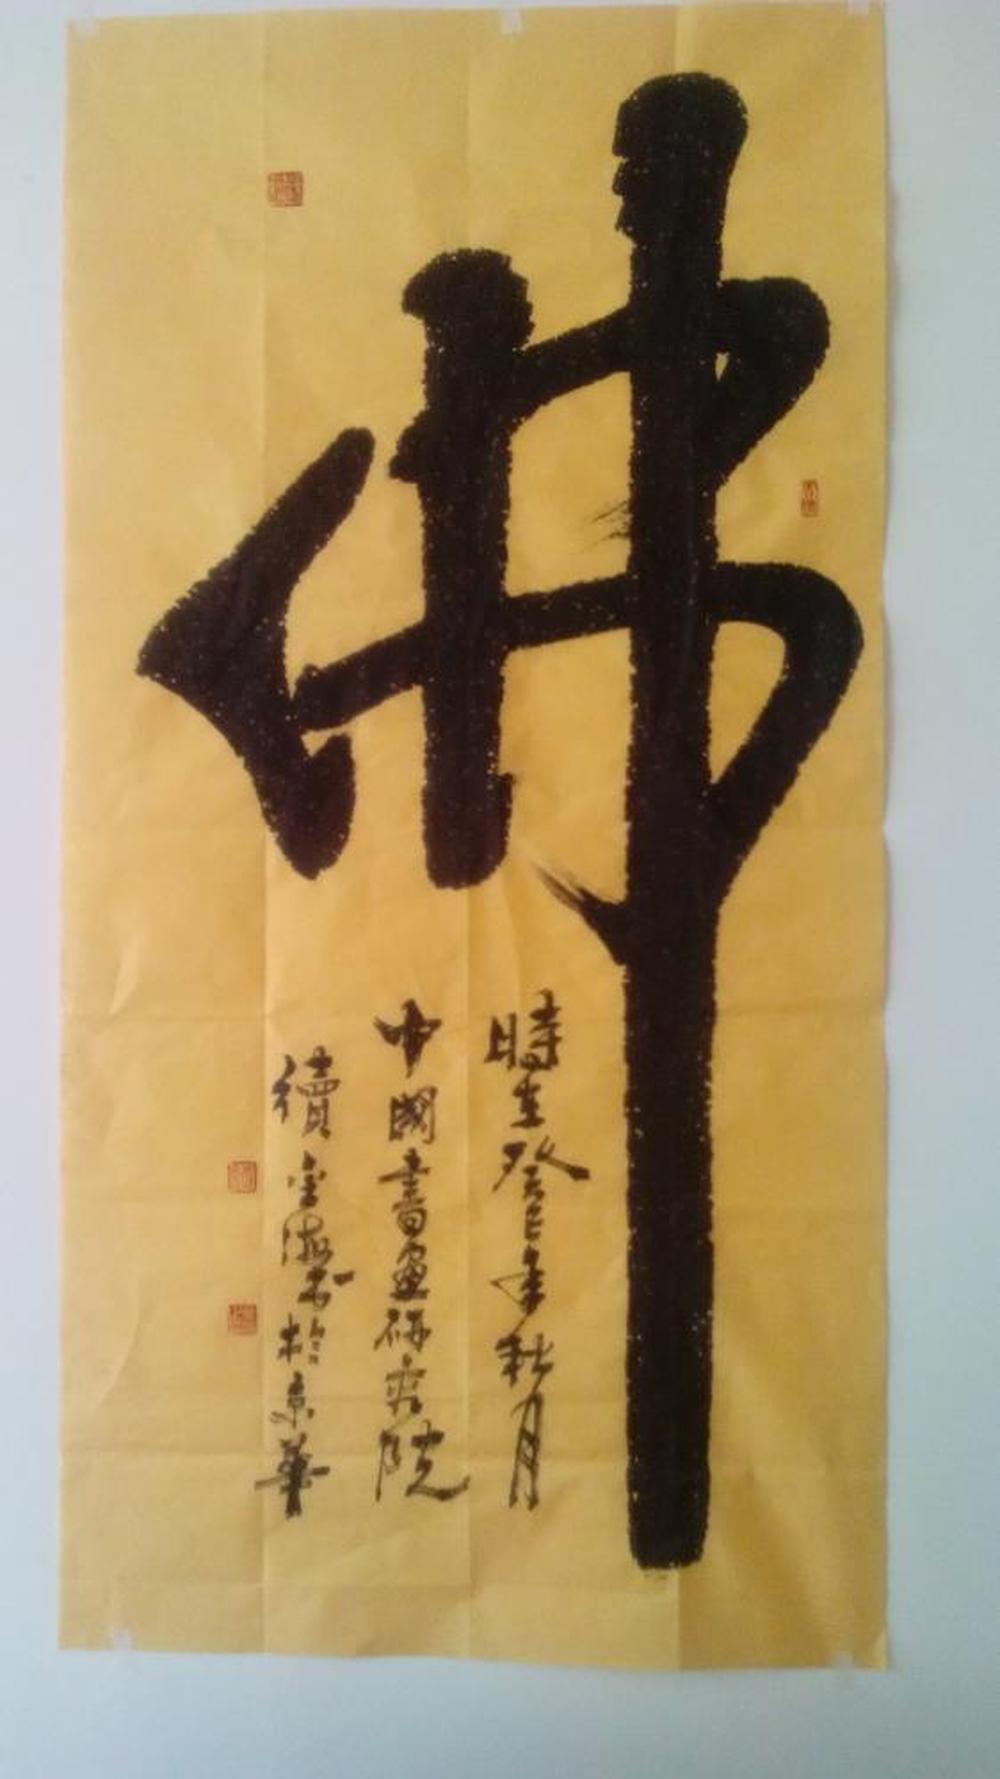 佛
時在癸巳年秋月
中國書畫研究院
續金海書於京華